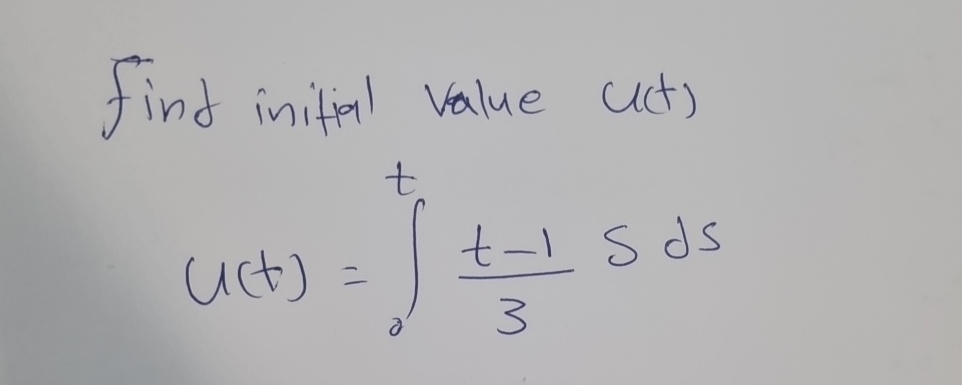 find initial value u(t)
u(t) = ∫₀ᵗ (t-1)/3 s ds